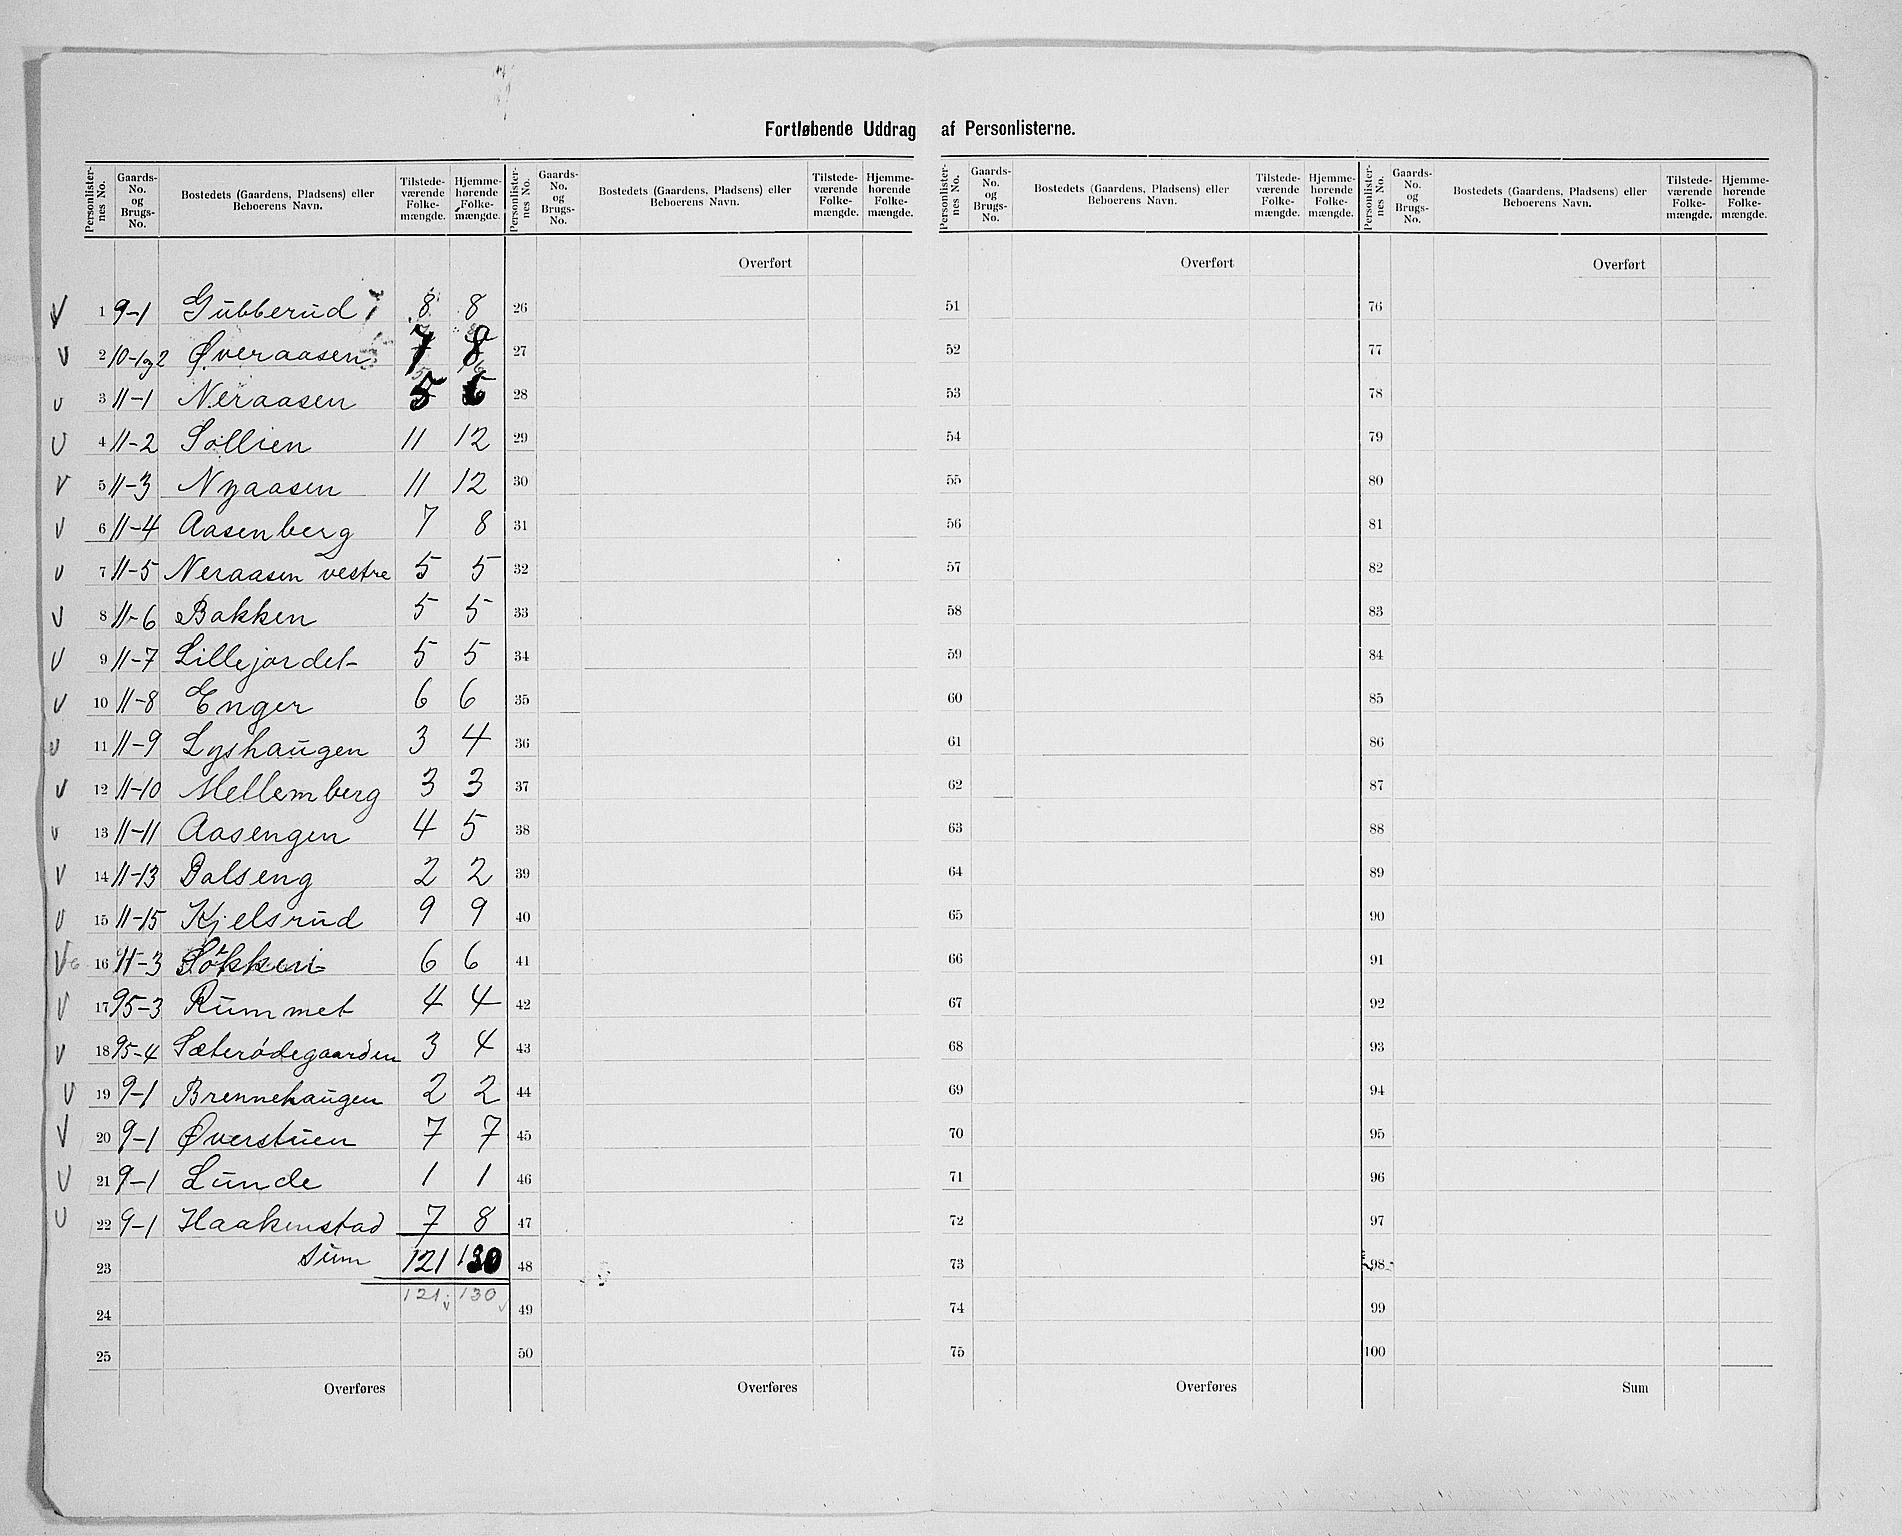 Fortløbende Uddrag af Personlisterne.
Personlisternes No. | Gaards-No. og Brugs-No. | Bostedets (Gaardens, Pladsens) eller Beboerens Navn. | Tilstedeværende Folkemængde. | Hjemmehørende Folkemængde.
Personlisternes No. | Gaards-No. og Brugs-No. | Bostedets (Gaardens, Pladsens) eller Beboerens Navn. | Tilstedeværende Folkemængde. | Hjemmehørende Folkemængde.
Personlisternes No. | Gaards-No. og Brugs-No. | Bostedets (Gaardens, Pladsens) eller Beboerens Navn. | Tilstedeværende Folkemængde. | Hjemmehørende Folkemængde.
Personlisternes No. | Gaards-No. og Brugs-No. | Bostedets (Gaardens, Pladsens) eller Beboerens Navn. | Tilstedeværende Folkemængde. | Hjemmehørende Folkemængde.
Overført Overført Overført
1 9-1 Gubberud 8 8 26 51 76
2 10-1 og 2 Øveraasen 7 8 27 52 77
3 11-1 Neraasen 5 6 28 53 78
4 11-2 Sollien 11 12 29 54 79
5 11-3 Nyaasen 11 12 30 55 80
6 11-4 Aasenberg 7 8 31 56 81
7 11-5 Neraasen vestre 5 5 32 57 82
8 11-6 Bakken 5 5 33 58 83
9 11-7 Lillejordet 5 5 34 59 84
10 11-8 Enger 6 6 35 60 85
11 11-9 Lyshaugen 3 4 36 61 86
12 11-10 Mellemberg 3 3 37 62 87
13 11-11 Aasengen 4 5 38 63 88
14 11-13 Dalseng 2 2 39 64 89
15 11-15 Kjelsrud 9 9 40 65 90
16 11-3 6 6 41 66 91
17 95-3 Rummet 4 4 42 67 92
18 95-4 Sæterødegaarden 3 4 43 68 93
19 9-1 Brennehaugen 2 2 44 69 94
20 9-1 Øverstuen 7 7 45 70 95
21 9-1 Lunde 1 1 46 71 96
22 9-1 Haakenstad 7 8 47 72 97
23 Sum 121 130 48 73 98
24 121 130 49 74 99
25 50 75 100
Overføres Overføres Overføres Sum